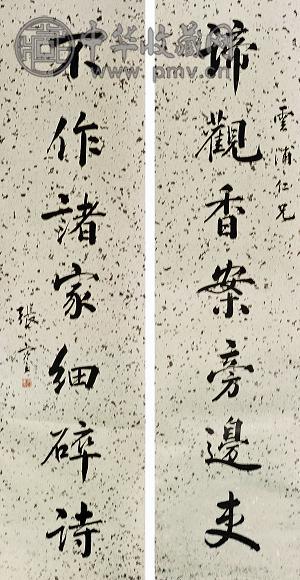 中华收藏网
www.pmv.cn
雲浦仁兄
諦觀香案旁邊吏
不作諸家細碎詩
張